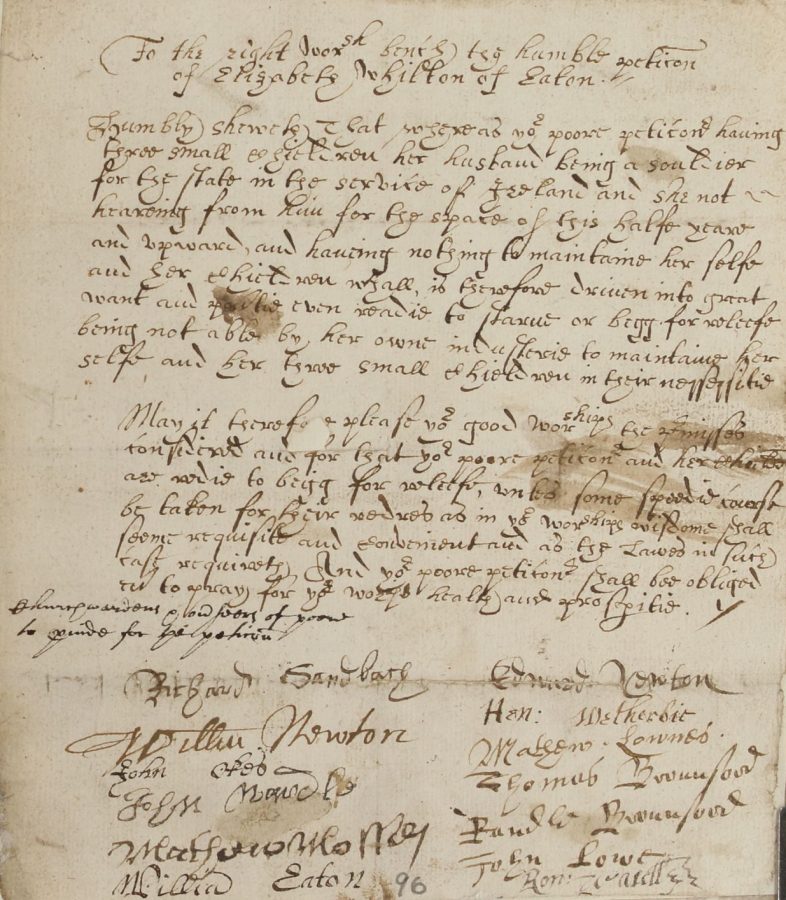 To the right Worsh bench the humble peticon
of Elizabeth Whilton of Eaton.
Humbly sheweth That whereas yor poore peticonr having
three small Chieldren her husband being a souldier
for the state in the service of Ireland and she not
heareing from him for the space of this halfe yeare
and upward, and haveing nothing to maintaine her selfe
and her Chieldren whall, is therefore driven into great
want and even readie to starve or begg for releefe
being not able by her owne industerie to maintaine her
selfe and her three small Chieldren in their nessessitie
May it therefore please yor good Worships the prmisses
considered and for that yor poore peticonr and her
are redie to begg for releefe, unles some speedie course
be taken for their redres as in yor worships wisdome shall
seeme requisite and convenient and as the Lawes in such
case requireth, And yor poore peticonr shall bee obliged
to pray for yor worps health and prosperitie.
Churchwardens & oversers of poore
to pvide for
Richard Sandbach
Edward Newton
Willm Newton
Hen: Wetherbie
John
Mathew Lownes
John Wardle
Thomas Brounsord
Mathew Mosse
Randle Brounsord
Willia Eaton
John Lowe
96